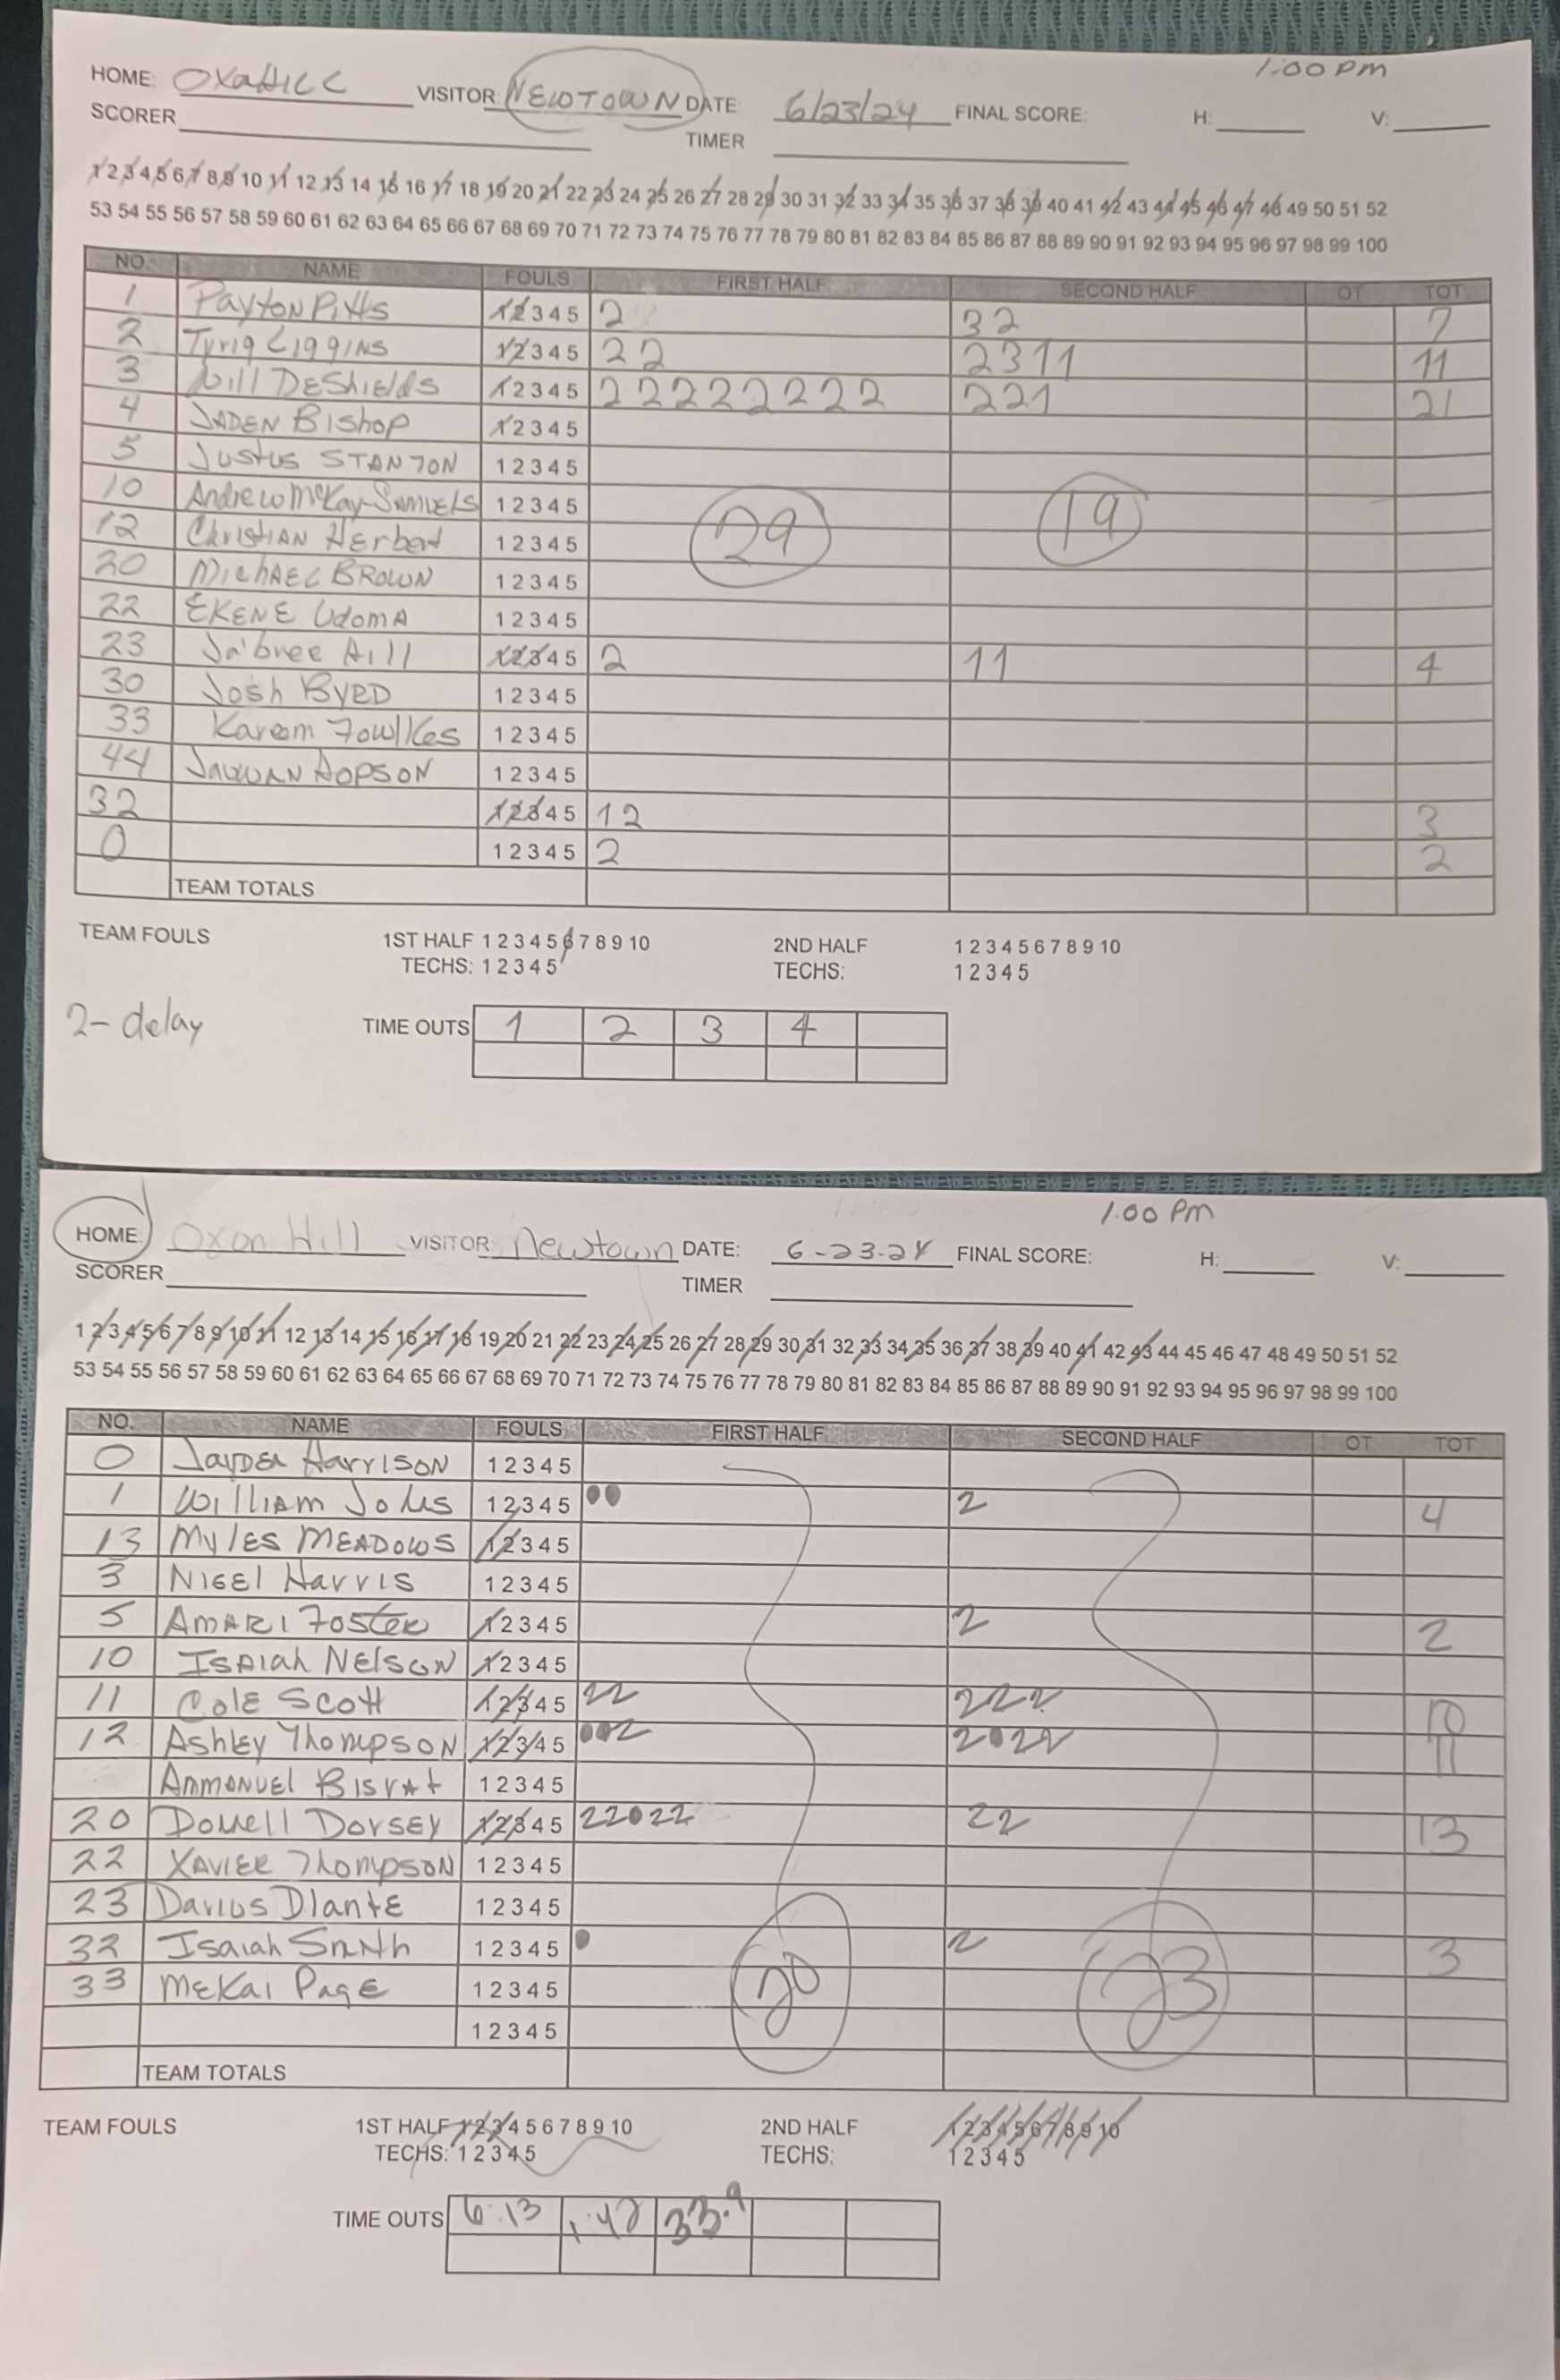 1:00 PM
HOME: OXOHILL VISITOR: NEWTOWN DATE: 6/23/24 FINAL SCORE: H: V:
SCORER TIMER
1 2 3 4 5 6 7 8 9 10 11 12 13 14 15 16 17 18 19 20 21 22 23 24 25 26 27 28 29 30 31 32 33 34 35 36 37 38 39 40 41 42 43 44 45 46 47 48 49 50 51 52
53 54 55 56 57 58 59 60 61 62 63 64 65 66 67 68 69 70 71 72 73 74 75 76 77 78 79 80 81 82 83 84 85 86 87 88 89 90 91 92 93 94 95 96 97 98 99 100
NO. NAME FOULS FIRST HALF SECOND HALF OT TOT
1 Payton Pitts 1 2 3 4 5 2 3 2 7
2 Tyriq Liggins 1 2 3 4 5 2 2 2 3 1 1 11
3 DeShields 1 2 3 4 5 2 2 2 2 2 2 2 2 2 2 1 21
4 JADEN Bishop 1 2 3 4 5
5 Justus STANTON 1 2 3 4 5
10 Andrew McKay-Samuels 1 2 3 4 5
12 Christian Herbert 1 2 3 4 5 29 19
20 Michael BROWN 1 2 3 4 5
22 EKENE UdomA 1 2 3 4 5
23 Ja'bree Hill 1 2 3 4 5 2 1 1 4
30 Josh BYRD 1 2 3 4 5
33 Kareem Fowlkes 1 2 3 4 5
44 HOPSON 1 2 3 4 5
32 1 2 3 4 5 1 2 3
0 1 2 3 4 5 2 2
TEAM TOTALS
TEAM FOULS 1ST HALF 1 2 3 4 5 6 7 8 9 10 2ND HALF 1 2 3 4 5 6 7 8 9 10
TECHS: 1 2 3 4 5 TECHS: 1 2 3 4 5
2- delay TIME OUTS 1 2 3 4
1:00 PM
HOME: Oxon Hill VISITOR: Newtown DATE: 6-23-24 FINAL SCORE: H: V:
SCORER TIMER
1 2 3 4 5 6 7 8 9 10 11 12 13 14 15 16 17 18 19 20 21 22 23 24 25 26 27 28 29 30 31 32 33 34 35 36 37 38 39 40 41 42 43 44 45 46 47 48 49 50 51 52
53 54 55 56 57 58 59 60 61 62 63 64 65 66 67 68 69 70 71 72 73 74 75 76 77 78 79 80 81 82 83 84 85 86 87 88 89 90 91 92 93 94 95 96 97 98 99 100
NO. NAME FOULS FIRST HALF SECOND HALF OT TOT
0 Jayden Harrison 1 2 3 4 5
1 William 1 2 3 4 5 2 4
13 MYLES MEADOWS 1 2 3 4 5
3 NIGEL Harris 1 2 3 4 5
5 AMARI Foster 1 2 3 4 5 2 2
10 ISAIAH NELSON 1 2 3 4 5
11 Cole Scott 1 2 3 4 5 2 2 2 2 2 10
12 Ashley Thompson 1 2 3 4 5 2 2 2 2 11
Ammanuel Bisrat 1 2 3 4 5
20 Donell Dorsey 1 2 3 4 5 2 2 2 2 2 2 13
22 XAVIER Thompson 1 2 3 4 5
23 Darius Dlante 1 2 3 4 5
32 Isaiah Smith 1 2 3 4 5 2 3
33 Mekai Page 1 2 3 4 5 20 23
1 2 3 4 5
TEAM TOTALS
TEAM FOULS 1ST HALF 1 2 3 4 5 6 7 8 9 10 2ND HALF 1 2 3 4 5 6 7 8 9 10
TECHS: 1 2 3 4 5 TECHS: 1 2 3 4 5
TIME OUTS 6:13 1:42 33.9